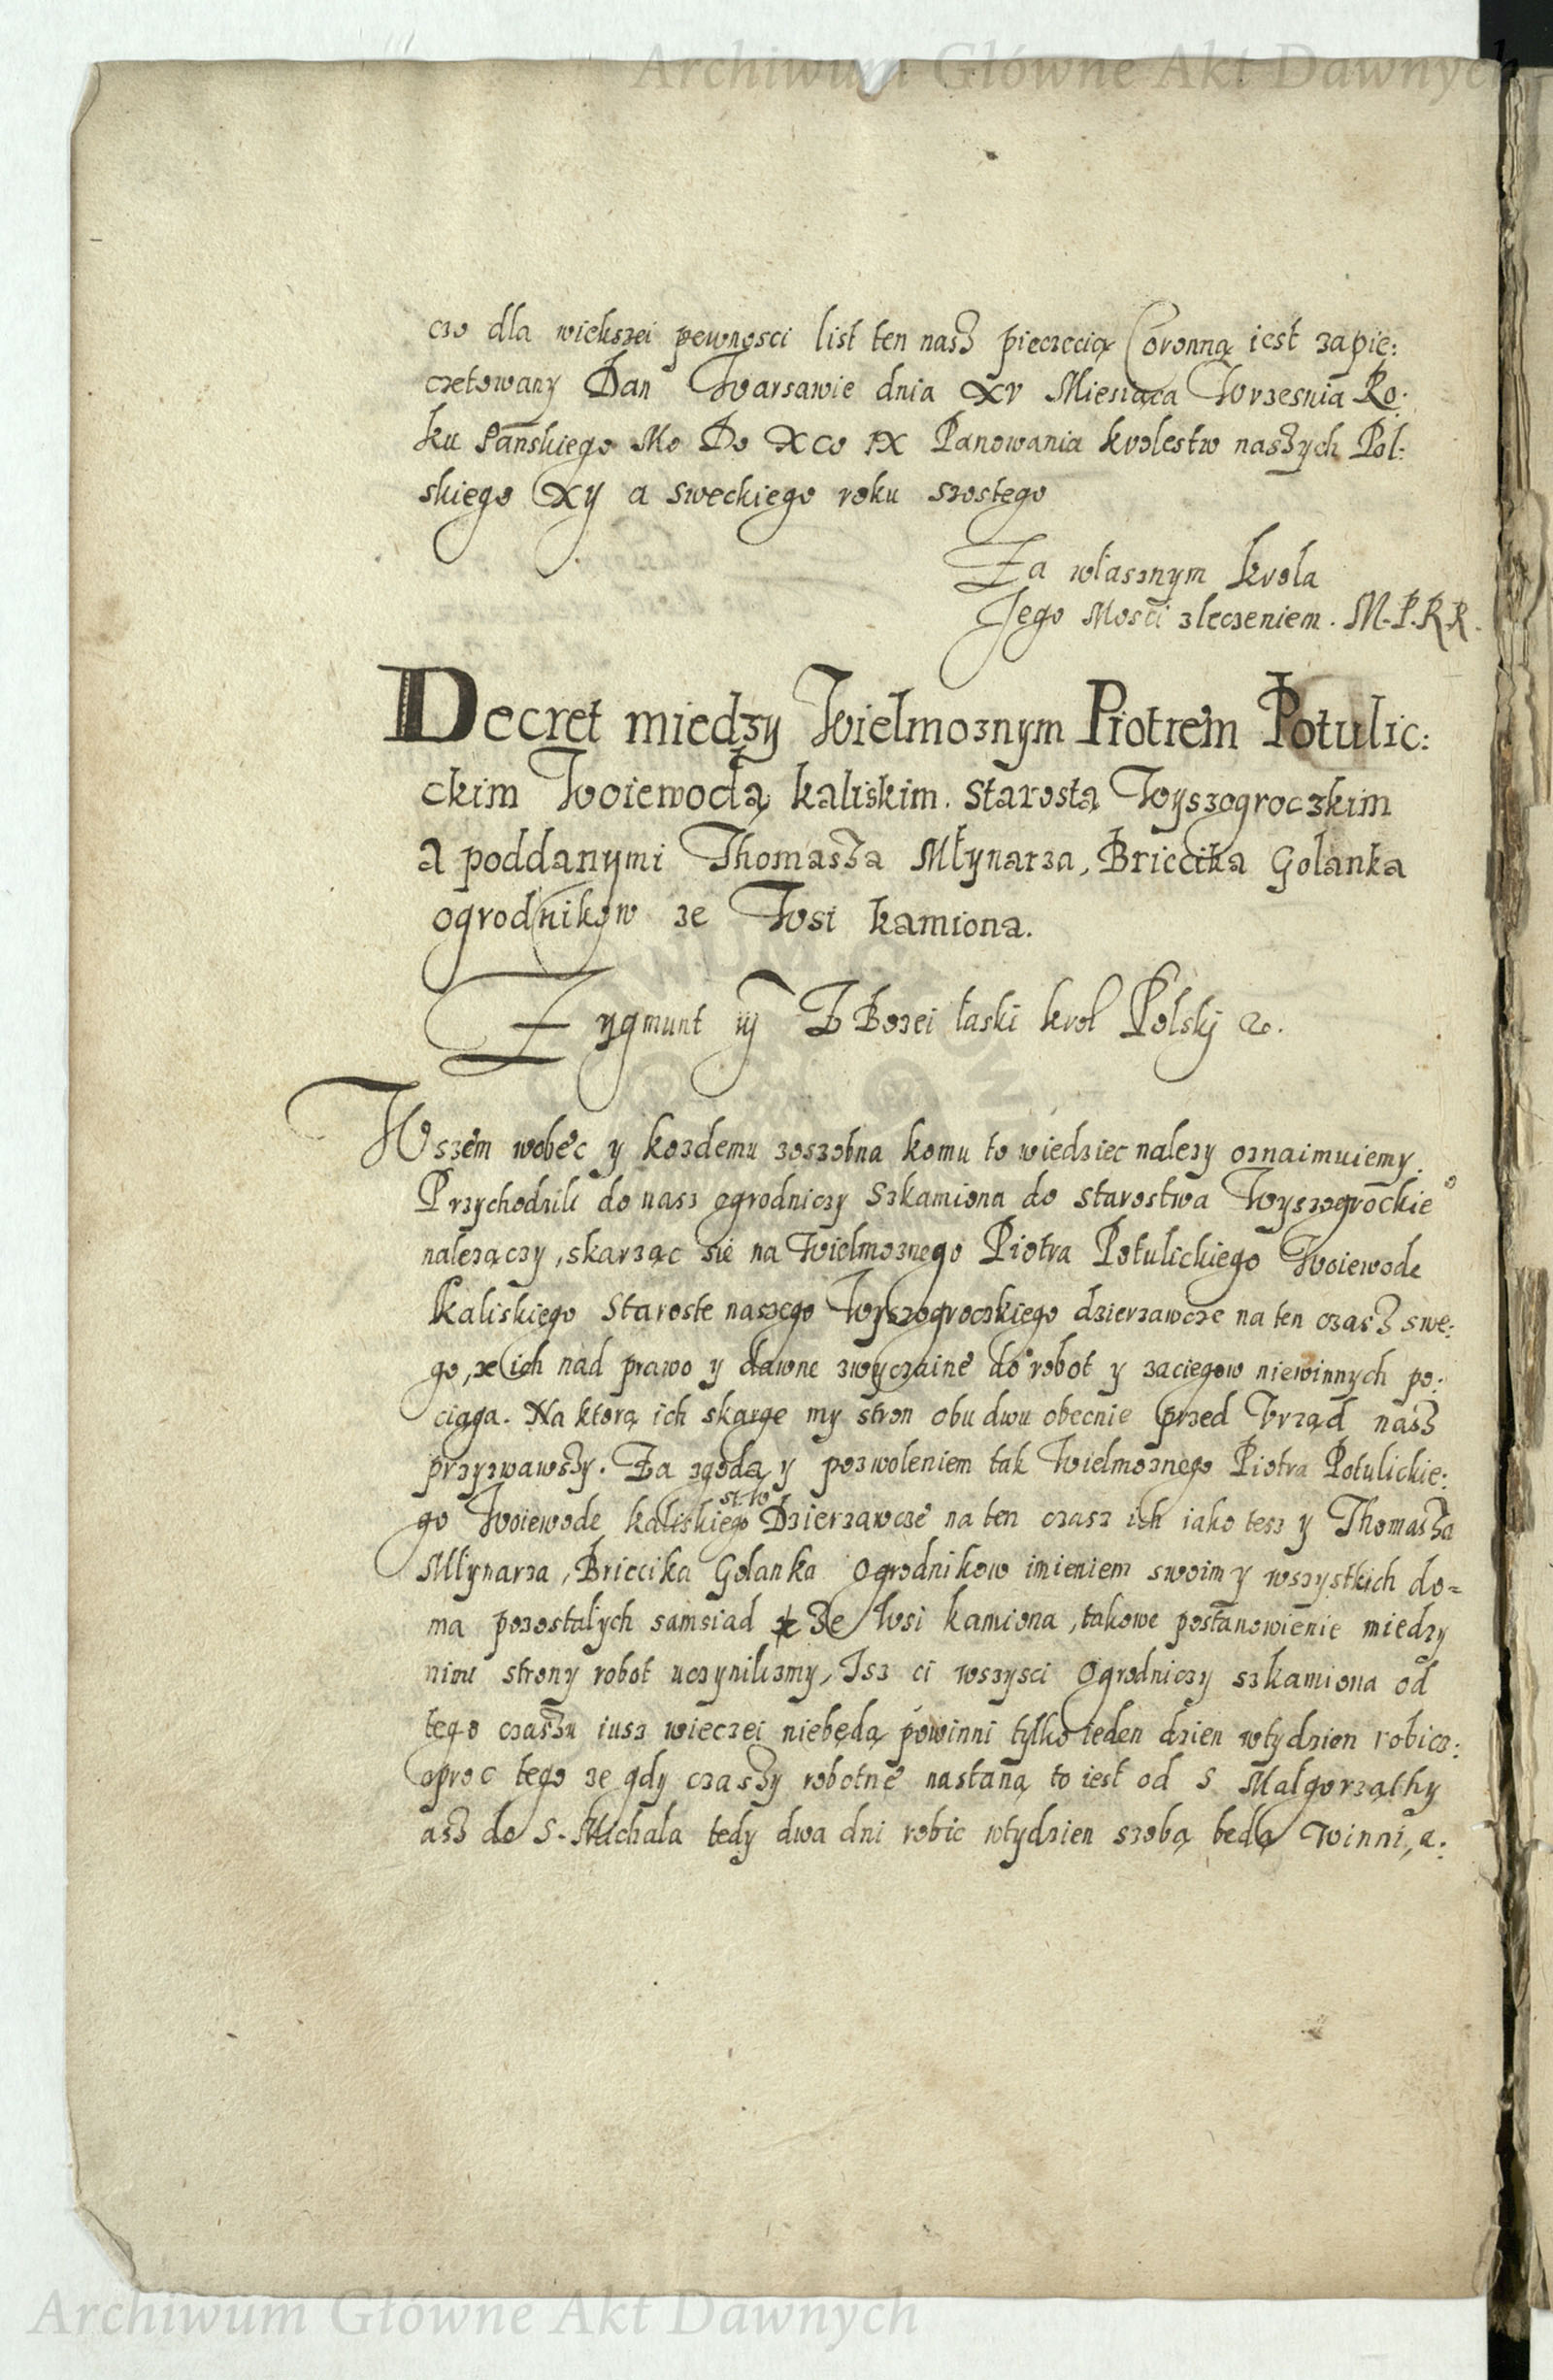 Archiwum Główne Akt Dawnych
czo dla wiekszei pewnosci list ten nasz pieczecią Coronną iest zapie:
czetowany Dan Warsawie dnia XV Miesiąca Wrzesnia Ro:
ku Panskiego Mo Do XCo IX Panowania krolestw naszych Pol:
skiego Xij a sweckiego roku szostego
Za własznym krola
Jego Mosci zleczeniem. M.P.R.R.
Decret miedzy Wielmoznym Piotrem Potulic:
ckim Woiewodą kaliskim. Starostą Wyszogroczkim
a poddanymi Thomasza Młynarza, Briccika Golanka
ogrodnikow ze Wsi kamiona.
Zygmunt iij Z Bozei łaski krol Polskj &c.
Wszem wobec y kozdemu zoszobna komu to wiedziec nalezy oznaimuiemy.
Przychodzili do nasz ogrodniczy Szkamiona do starostwa Wyszogrockieo
nalezączy, skarząc sie na Wielmoznego Piotra Potulickiego Woiewode
Kaliskiego Staroste naszego Wyszogroczkiego dzierzawcze na ten czasz swe:
go, ze ich nad prawo y dawne zwyczaine do robot y zaciegow niewinnych po:
ciąga. Na ktorą ich skarge my stron obu dwu obecnie przed Vrząd nasz
przyzwawszy. Za zgodą y pozwoleniem tak Wielmoznego Piotra Potulickie:
go Woiewode kaliskiego st: W Dzierzawcze na ten czasz ich iako tesz y Thomasza
Młynarza, Briccika Golanka Ogrodnikow imieniem swoim y wszystkich do=
ma pozostałych samsiad Ze Wsi kamiona, takowe postanowienie miedzy
nimi strony robot uczynilizmy, Isz ci wszysci Ogrodniczy szkamiona od
tego czaszu iusz wieczei niebędą powinni tylko ieden dzien wtydzien robicz:
oproc tego ze gdy czaszy robotne nastaną to iest od S Malgorzathy
asz do S. Michala tedy dwa dni robic wtydzien szobą bedą winni, a:
Archiwum Główne Akt Dawnych